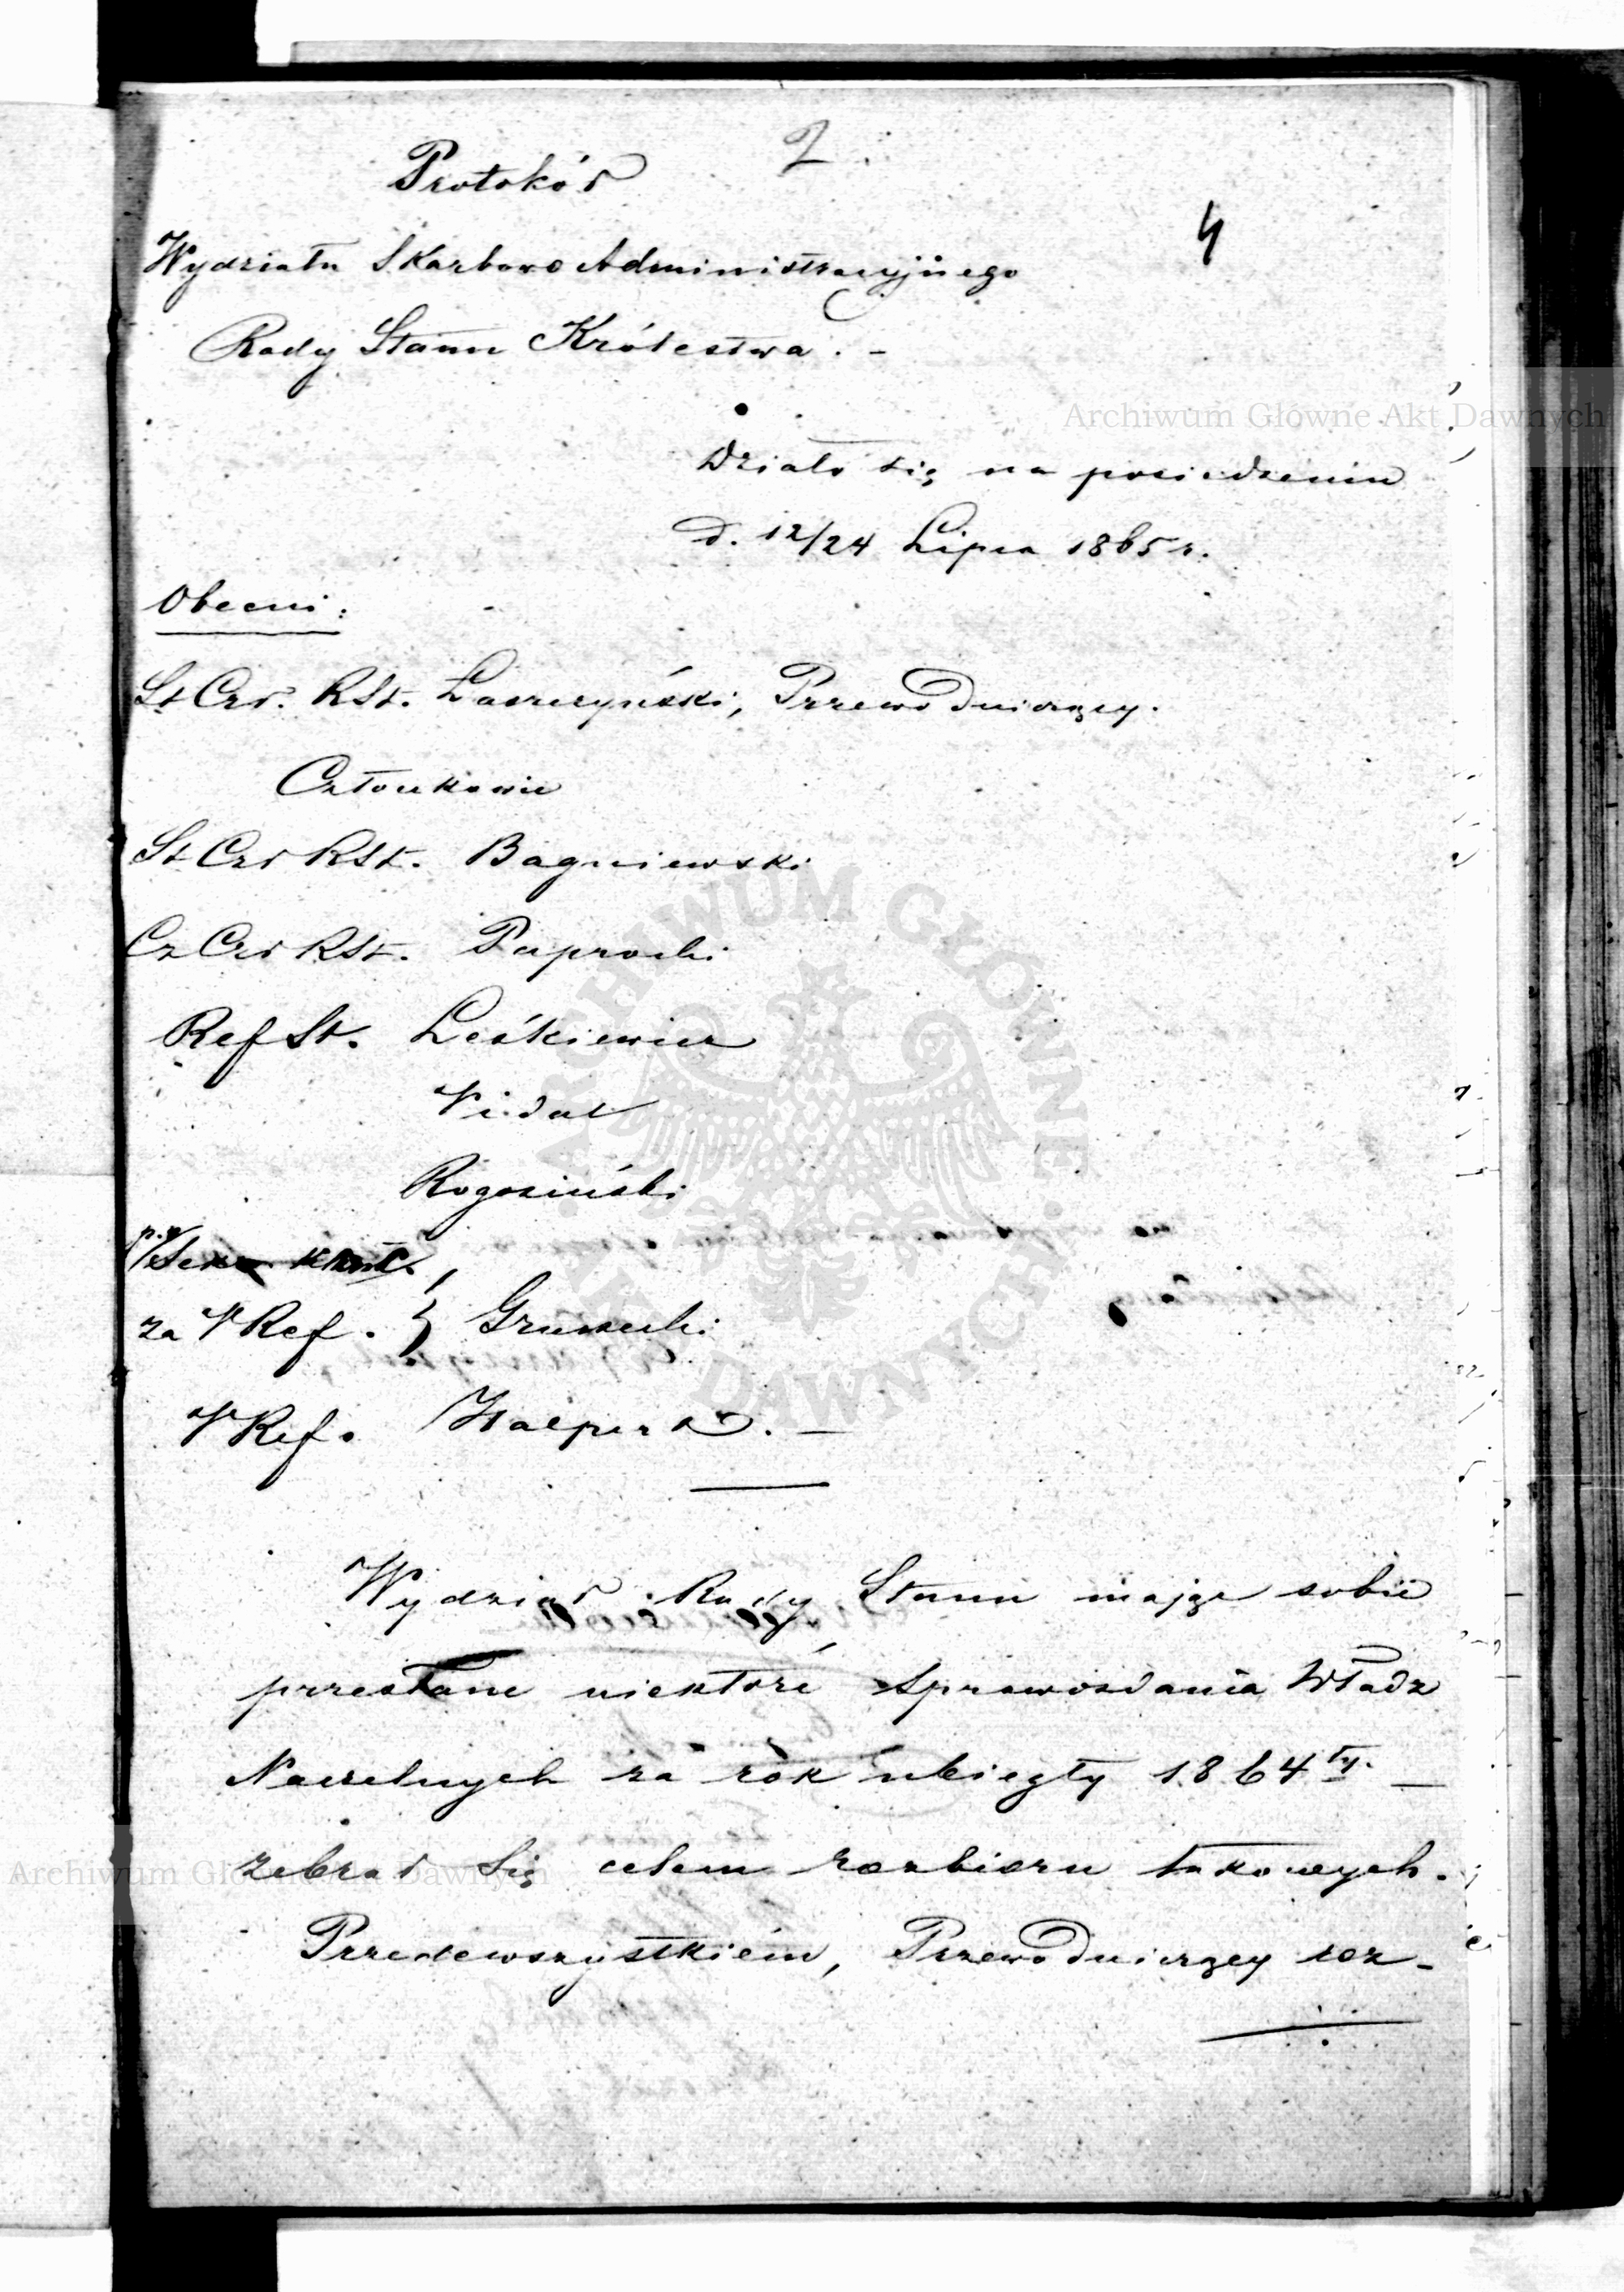 2.
Protokół
4
Wydziału Skarbowo Administracyjnego
Rady Stanu Królestwa. -
Działo się na posiedzeniu
d. 12/24 Lipca 1865 r.
Obecni:
St Czł. RSt. Łaszczyński, Przewodniczący.
Członkowie
St Czł RSt. Bagniewski
Cz Czł RSt. Paprocki
Ref St. Leśkiewicz
Vidal
Rogoziński
p.o.
za V Ref. } Gruszecki
V Ref. Halpert. —
Wydział Rady Stanu mając sobie
przesłane niektóre Sprawozdania Władz
Naczelnych za rok ubiegły 1864 ty. —
zebrał się celem rozbioru takowych.
Przedewszystkiém, Przewodniczący roz-
Archiwum Główne Akt Dawnych
ARCHIWUM GŁÓWNE AKT DAWNYCH
Archiwum Główne Akt Dawnych